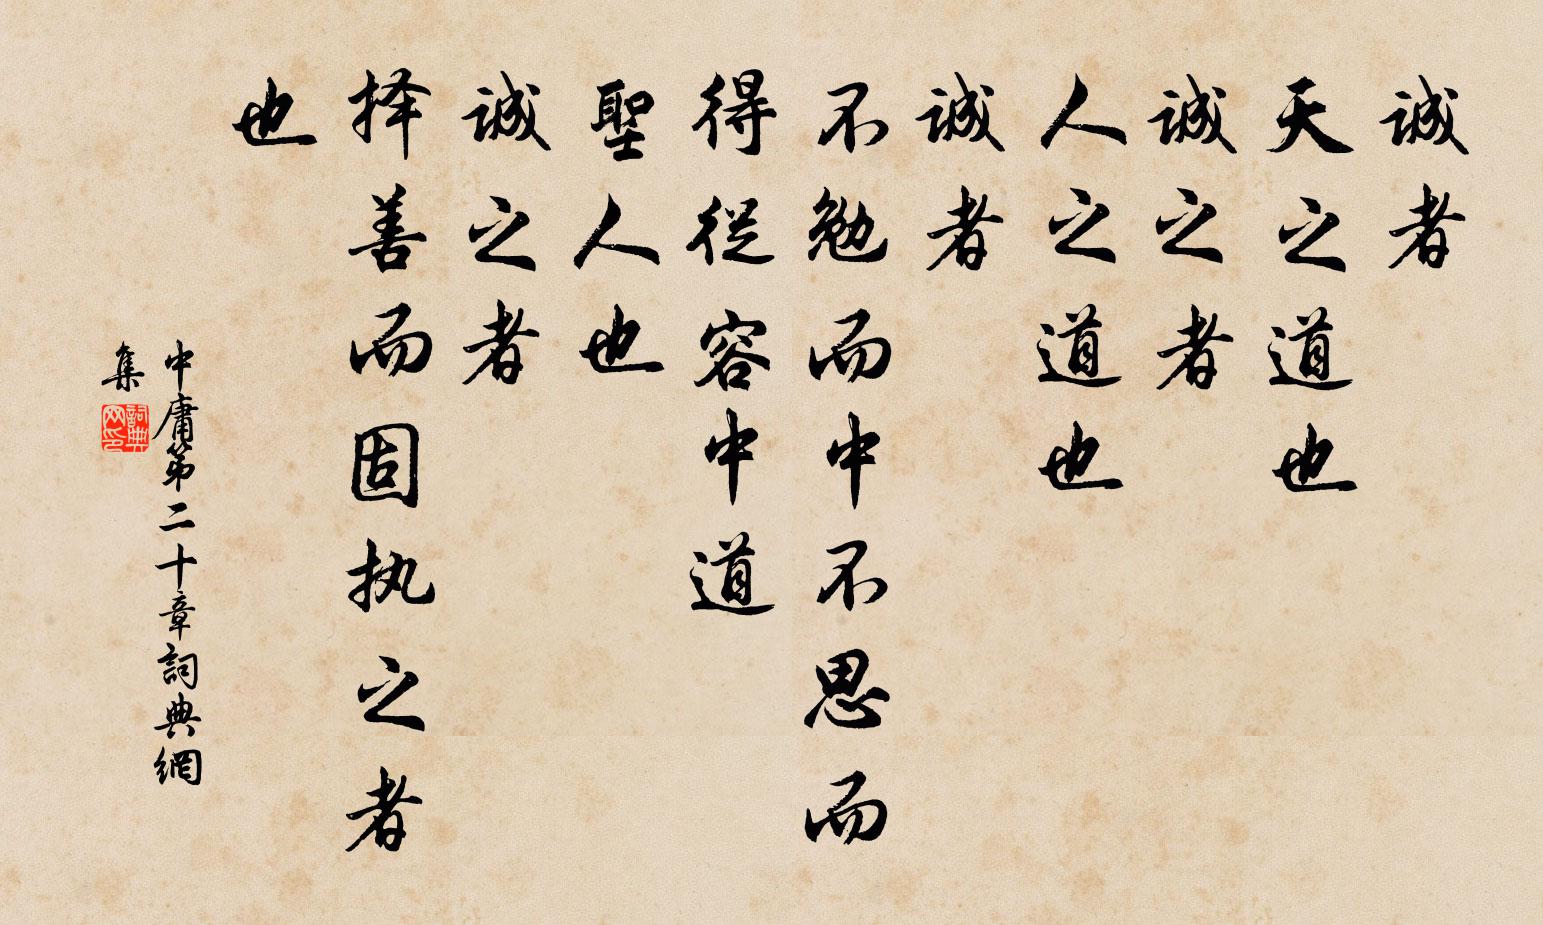 诚者
天之道也
诚之者
人之道也
诚者
不勉而中不思而
得從容中道
聖人也
诚之者
择善而固执之者
也
中庸第二十章詞典網
集
詞典
网印